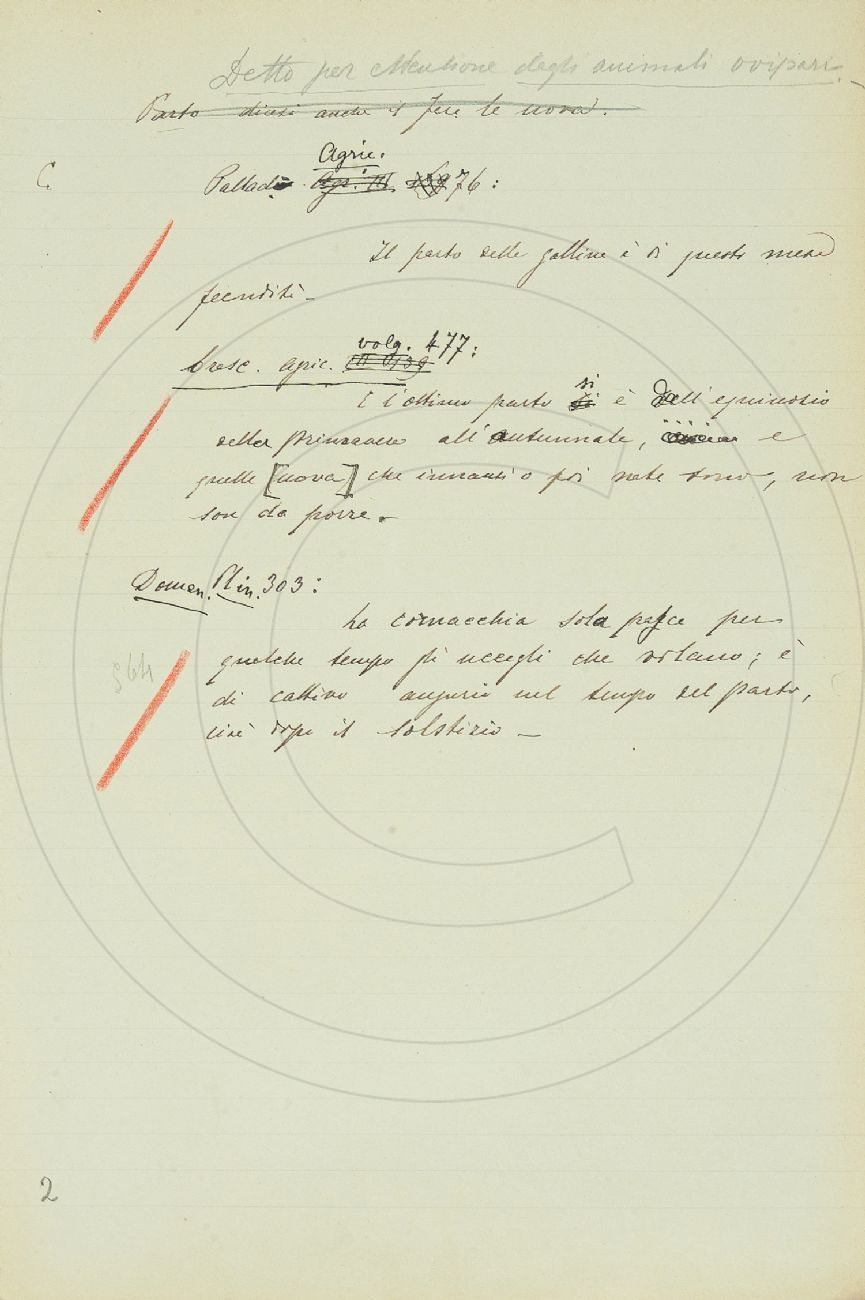 Detto per estensione degli animali ovipari.
Parto dicesi anche il fare le uova.
C.
Agric.
Pallad. 76:
Il parto delle galline è di questo mese
fecondità -
volg. 477:
Cresc. agric.
E l'ottimo parto si è dall'equinozio
della primavera all'autunnale, e
quelle [uova] che innanzi o poi nate sono, non
son da porre.
Domen. Plin. 303:
La cornacchia sola pasce per
qualche tempo gli uccegli che volano; è
di cattivo augurio nel tempo del parto,
cioè dopo il solstizio -
2